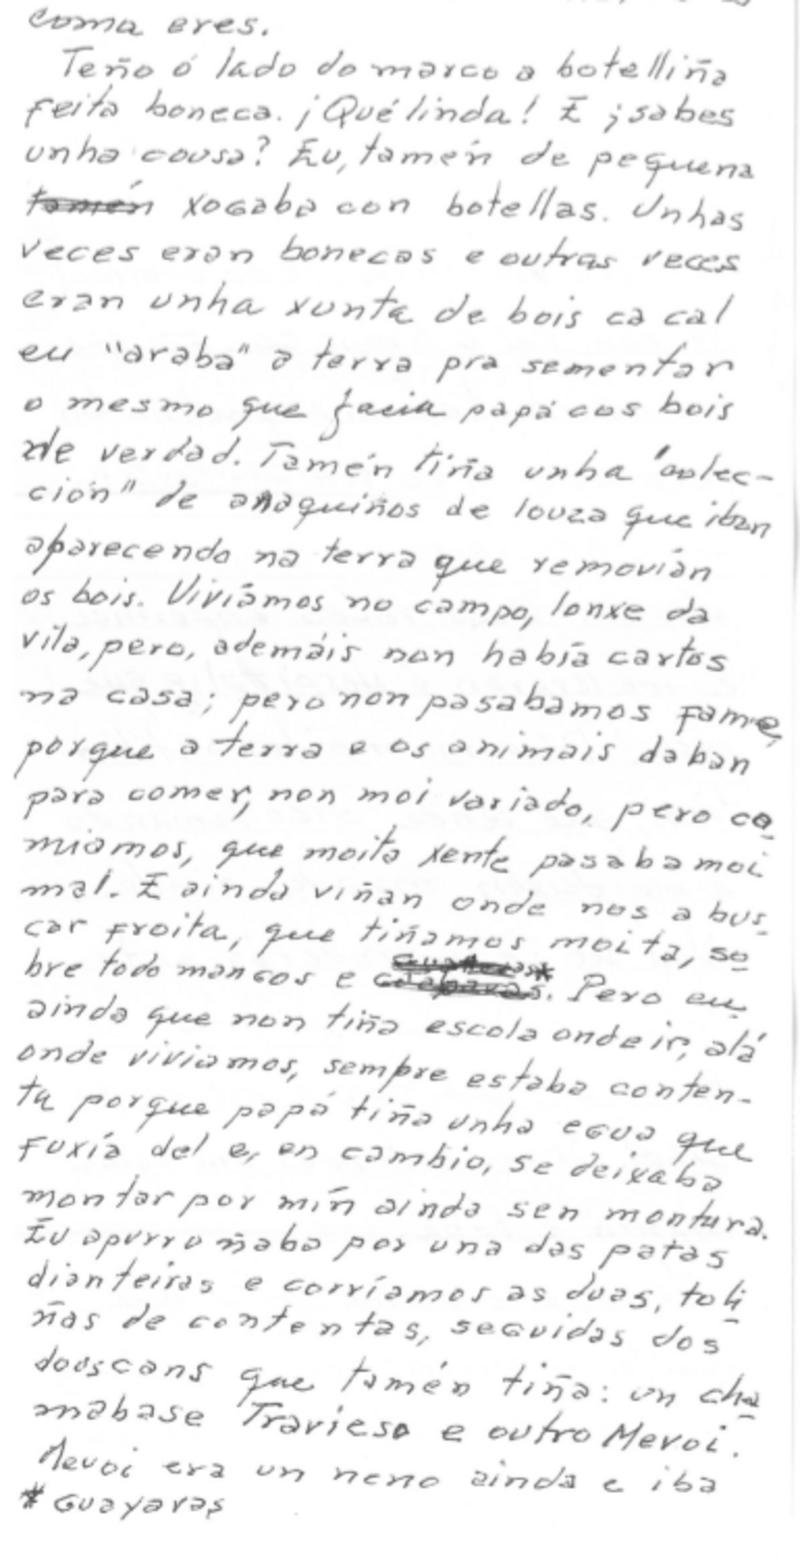 coma eres.
Teño ó lado do marco a botelliña
feita boneca. ¡Qué linda! E ¡sabes
unha cousa? Eu, tamén de pequena
tamén xogaba con botellas. Unhas
veces eran bonecas e outras veces
eran unha xunta de bois ca cal
eu "araba" a terra pra sementar
o mesmo que facía papá cos bois
de verdad. Tamén tiña unha "colec-
ción" de anaquiños de louza que iban
aparecendo na terra que removían
os bois. Viviamos no campo, lonxe da
vila, pero, ademáis non había cartos
na casa; pero non pasabamos fame,
porque a terra e os animais daban
para comer, non moi variado, pero co-
miamos, que moita xente pasaba moi
mal. E ainda viñan onde nos a bus-
car froita, que tiñamos moita, so-
bre todo mangos e *. Pero eu,
ainda que non tiña escola onde ir, alá
onde viviamos, sempre estaba conten-
ta porque papá tiña unha egua que
fuxía del e, en cambio, se deixaba
montar por mín ainda sen montura.
Eu apurroñaba por una das patas
dianteiras e corríamos as duas, toli-
ñas de contentas, seguidas dos
dous cans que tamén tiña: un cha-
mabase Travieso e outro Mevoi.
Mevoi era un neno ainda e iba
* Guayavas